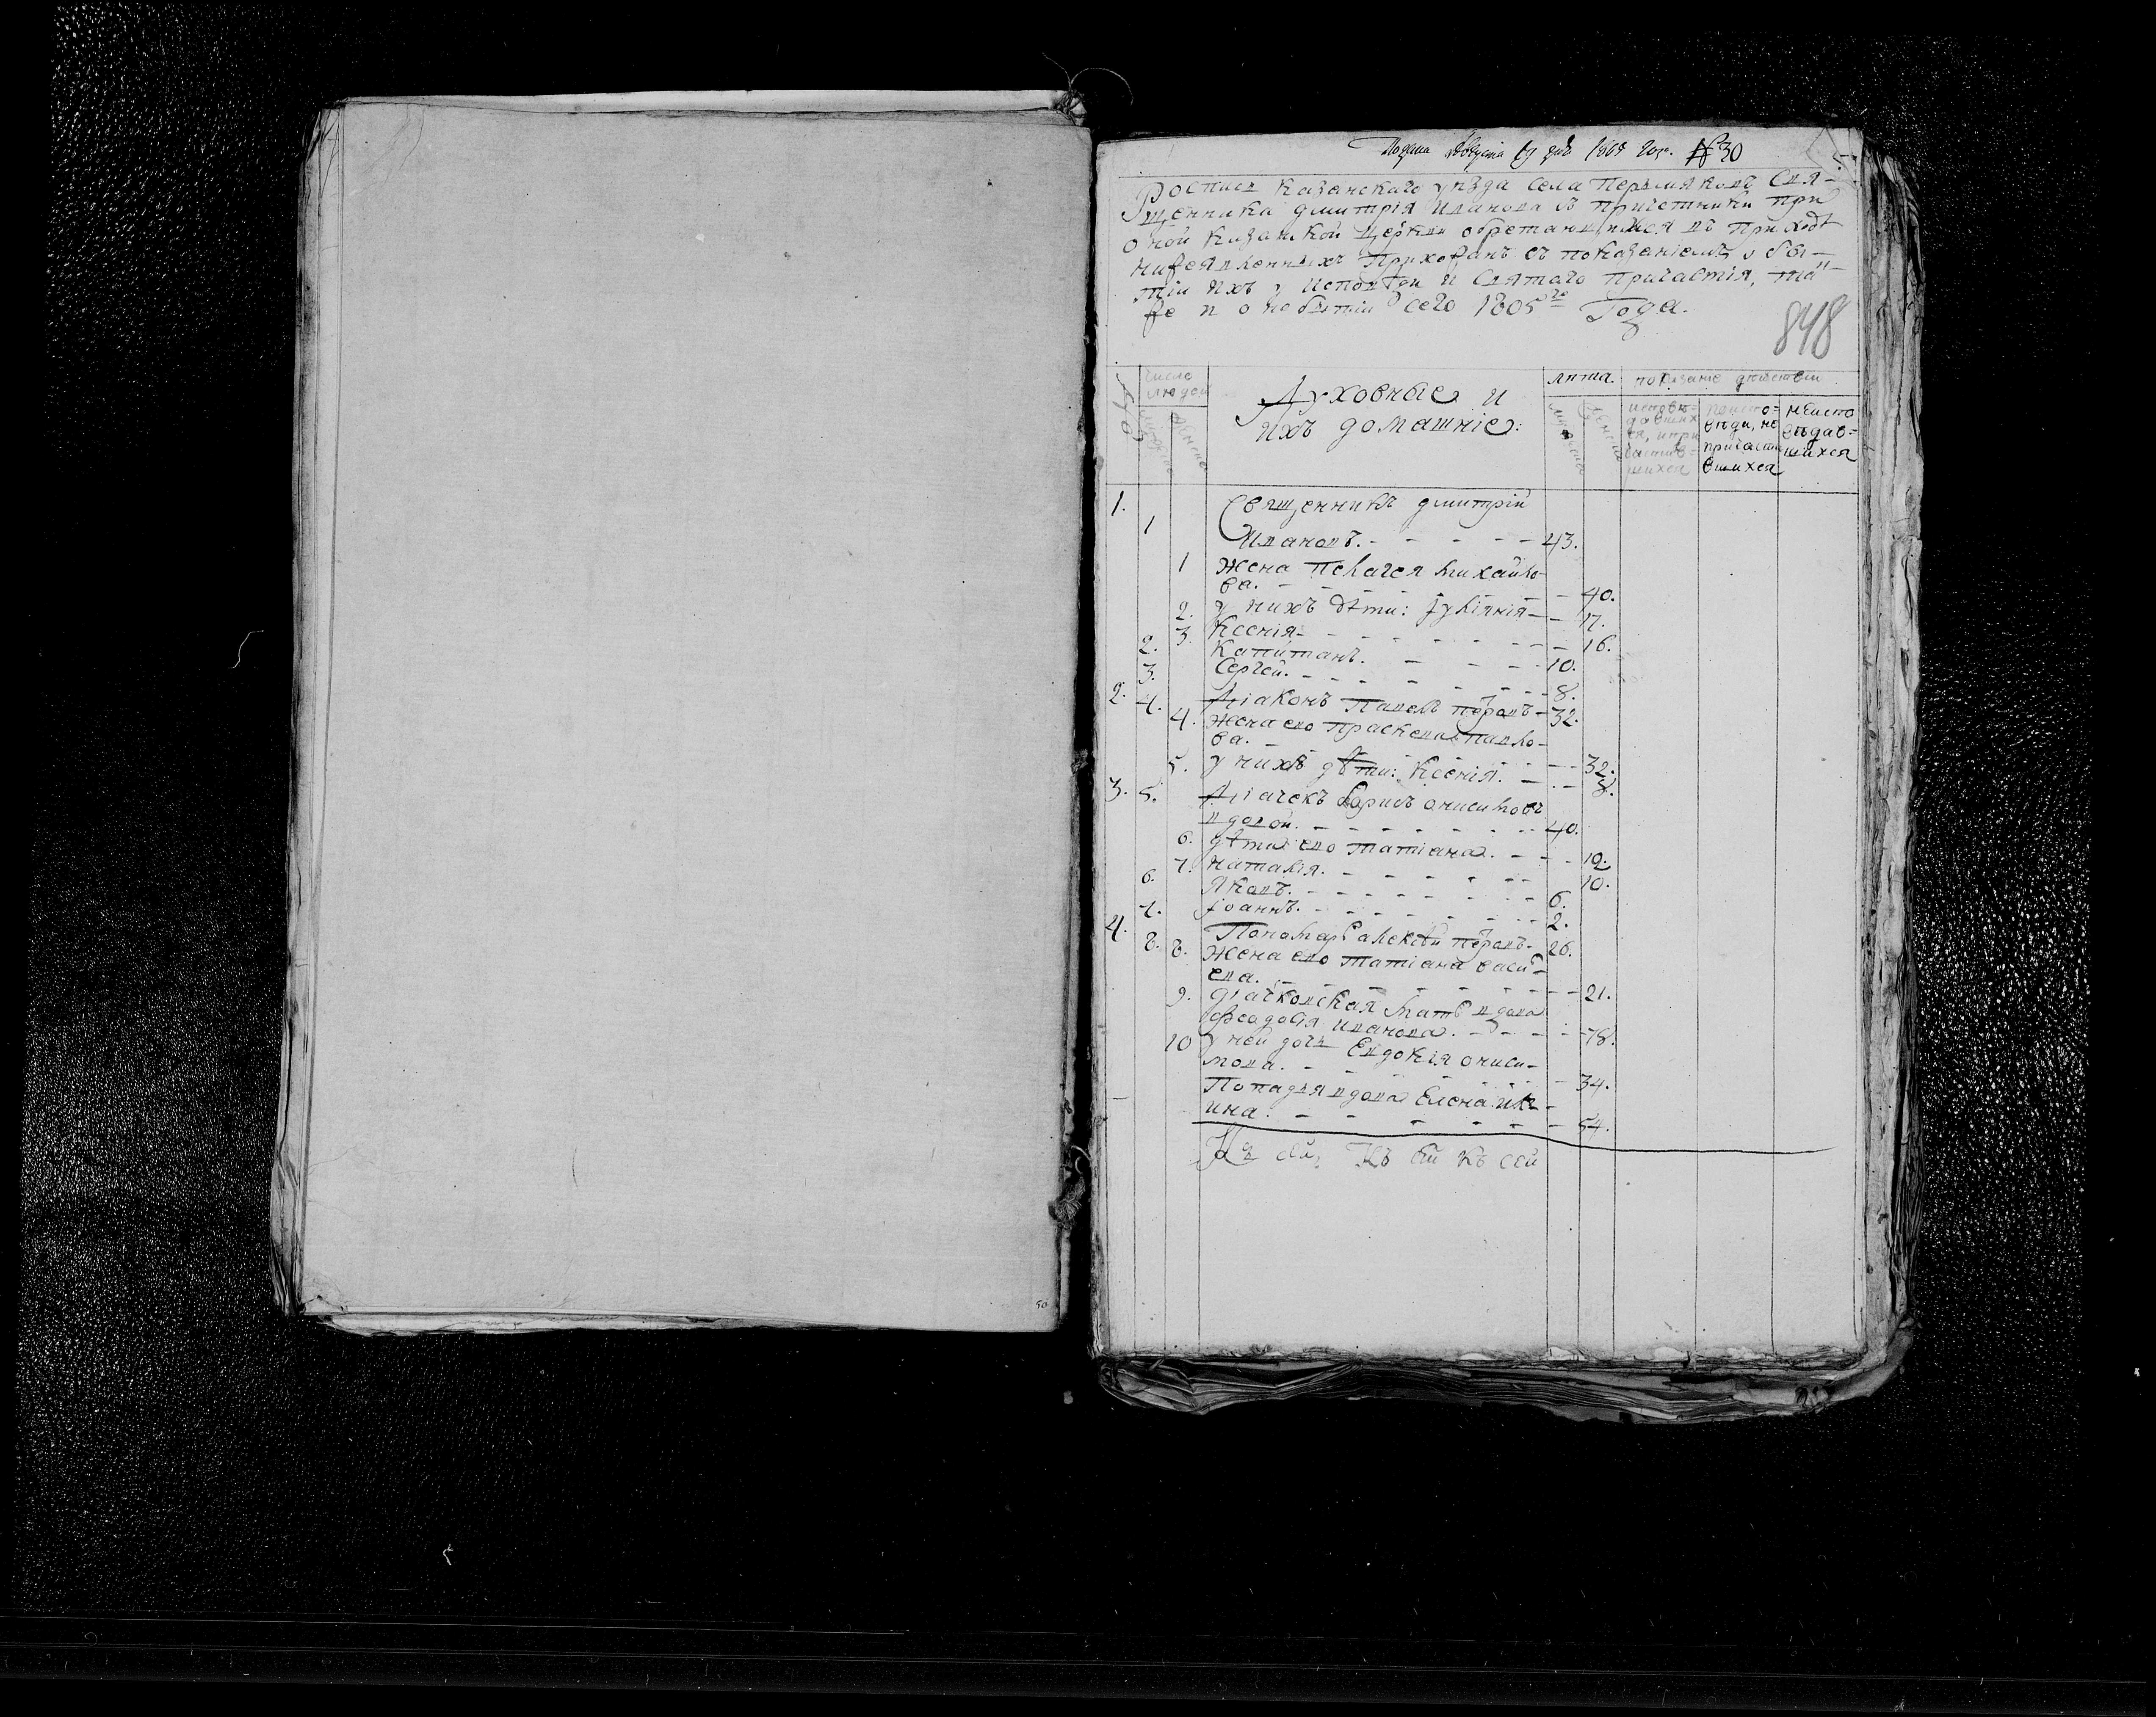 № 30
Роспись Казанскаго уѣзда села Пермяковъ Свя-
щенника Дмитрія Иванова съ причетники при
оной Казанской Церкви обретающихся въ приходѣ
нижеявленныхъ Прихожанъ съ показаніемъ о бы-
тіи ихъ у исповѣди и Святаго Причастія, та
же и о небытіи сего 1805го Года.
848
число
людей
Духовные и
ихъ домашніе:
лѣта.
показание действии
мужеска
женска
исповѣ-
давших
ся, и при
частив-
шихся
неиспо
вѣдав=
шихся
причасти
вшихся
1. 1 Священникъ Дмитрій
Ивановъ. 43.
1 жена Пелагея Михайло
ва. 40.
2. у нихъ дѣти: Іуліянія 17.
3. Ксенія 16.
2. Капитанъ. 10.
3. Сергей. 8.
2. 4. Діаконъ Павелъ Петровъ 32.
4. жена его Прасковья Павло-
ва. 32.
5. у нихъ дѣти: Ксенія. 8.
3. 5. Діачекъ Борисъ Онисимовъ
вдовой. 40.
6. дѣти его Татіана. 19.
7. Наталія. 10.
6. Яковъ. 6.
7. Іоаннъ. 2.
4. 8. Пономарь Алексѣй Петровъ 26.
8. жена его Татіана Васи-
ева. 21.
9. дьячковская мать вдова
Феодосія Иванова. 78.
10 у ней дочь Евдокія Ониси-
мова. 34.
Попадья вдова Елена
ина. 54.